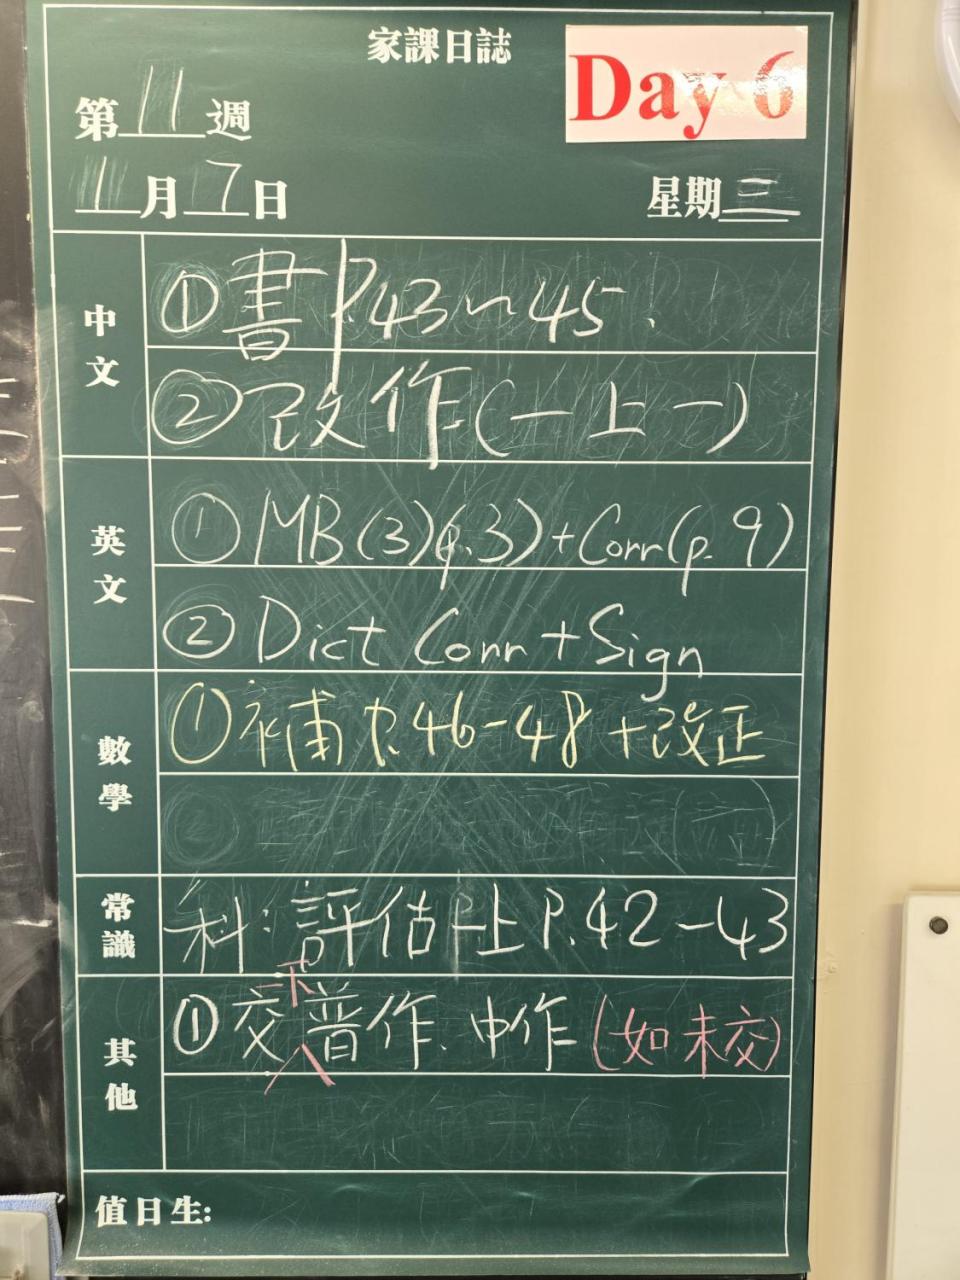 家課日誌
Day 6
第11週
1月7日 星期三
中文
①書P.43~45.
②改作(一上一)
英文
①MB(3)(p.3)+Corr(p.9)
②Dict Corr+Sign
數學
①補P.46-48+改正
常識
科:評估一上P.42-43
其他
一下
①交普作、中作(如未交)
值日生: